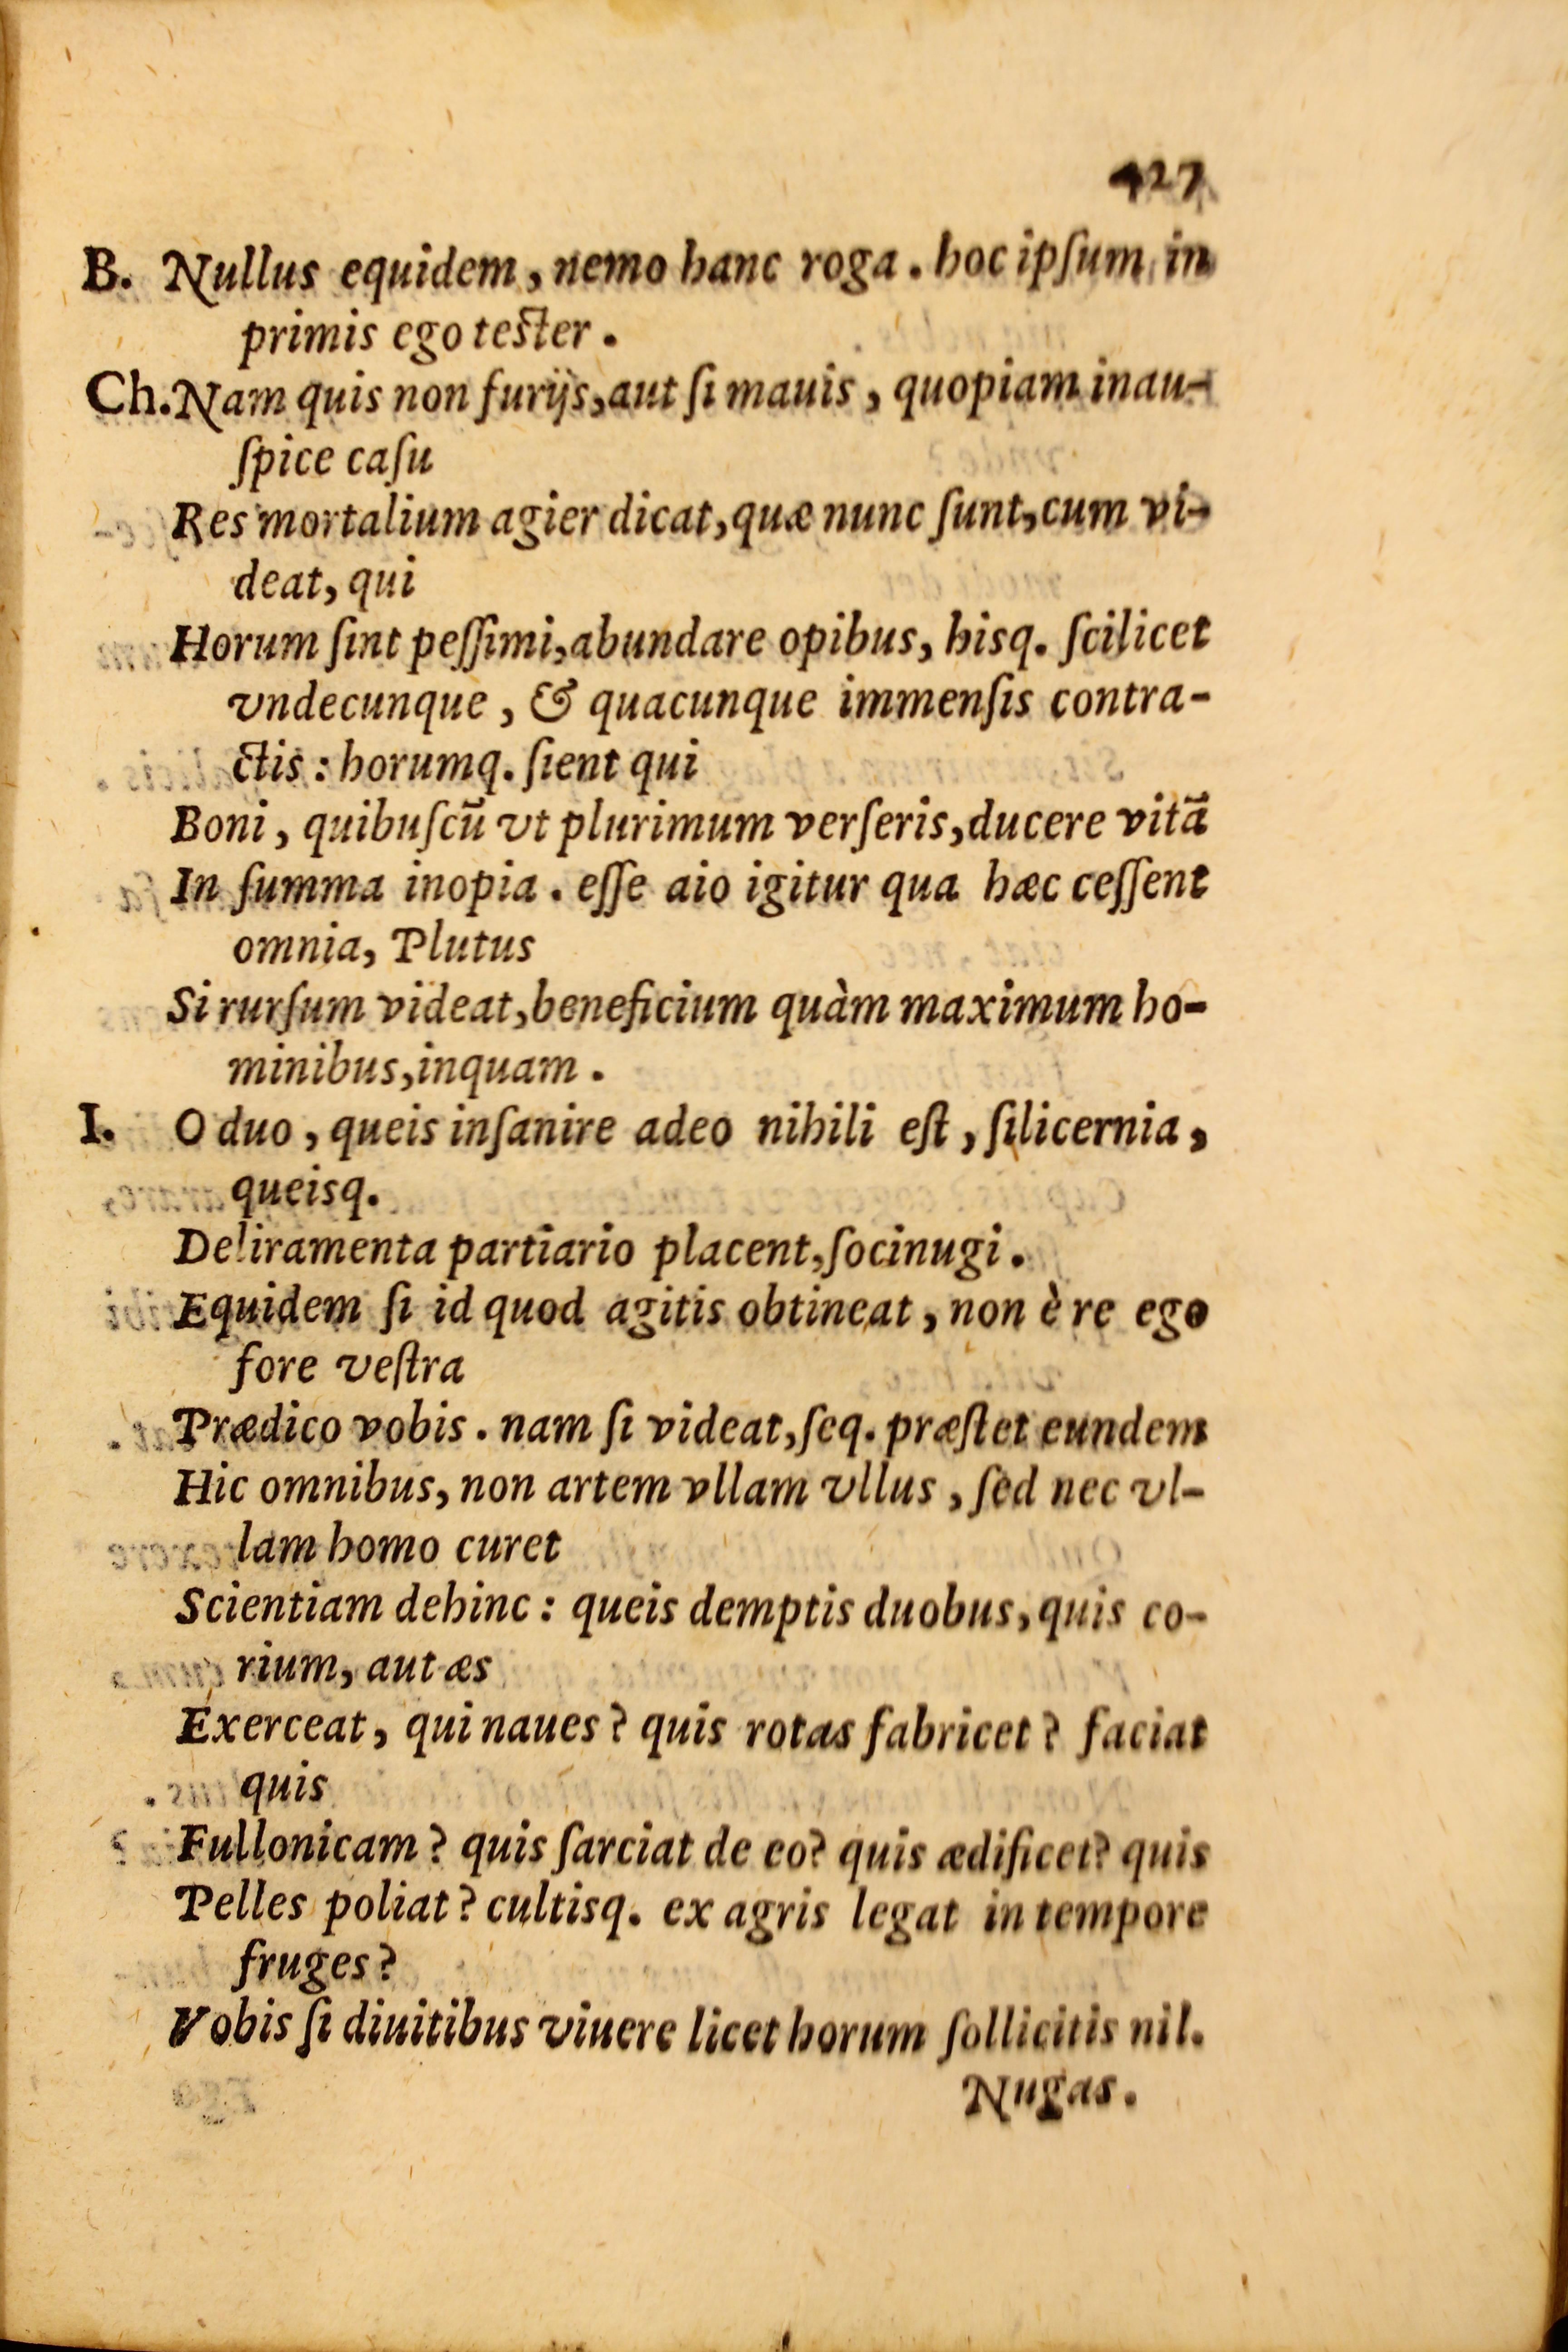 427
B. Nullus equidem, nemo hanc roga. hoc ipſum in
primis ego teſter.
Ch. Nam quis non furijs, aut ſi mauis, quopiam inau-
ſpice caſu
Res mortalium agier dicat, quæ nunc ſunt, cum vi-
deat, qui
Horum ſint peſſimi, abundare opibus, hisq. ſcilicet
vndecunque, & quacunque immenſis contra-
ctis: horumq. ſient qui
Boni, quibuſcū vt plurimum verſeris, ducere vitã
In ſumma inopia. eſſe aio igitur qua hæc ceſſent
omnia, Plutus
Si rurſum videat, beneficium quàm maximum ho-
minibus, inquam.
I. O duo, queis inſanire adeo nihili eſt, ſilicernia,
queisq.
Deliramenta partiario placent, ſocinugi.
Equidem ſi id quod agitis obtineat, non è re ego
fore veſtra
Prædico vobis. nam ſi videat, ſeq. præſtet eundem
Hic omnibus, non artem vllam vllus, ſed nec vl-
lam homo curet
Scientiam dehinc: queis demptis duobus, quis co-
rium, aut æs
Exerceat, qui naues? quis rotas fabricet? faciat
quis
Fullonicam? quis ſarciat de eo? quis ædificet? quis
Pelles poliat? cultisq. ex agris legat in tempore
fruges?
Vobis ſi diuitibus viuere licet horum ſollicitis nil.
Nugas.